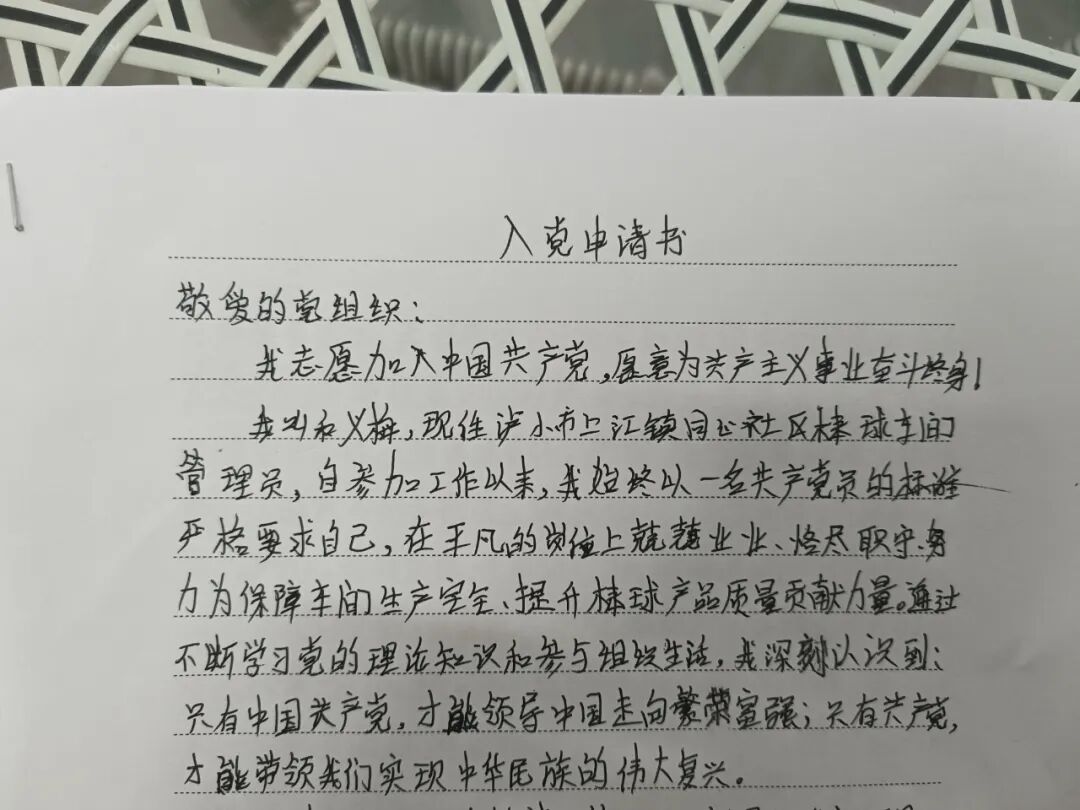 入党申请书
敬爱的党组织：
我志愿加入中国共产党，愿意为共产主义事业奋斗终身！
我叫和义梅，现任泸水市上江镇同心社区棒球车间
管理员，自参加工作以来，我始终以一名共产党员的标准
严格要求自己，在平凡的岗位上兢兢业业、恪尽职守、努
力为保障车间生产安全、提升棒球产品质量贡献力量。通过
不断学习党的理论知识和参与组织生活，我深刻认识到：
只有中国共产党，才能领导中国走向繁荣富强；只有共产党，
才能带领我们实现中华民族的伟大复兴。